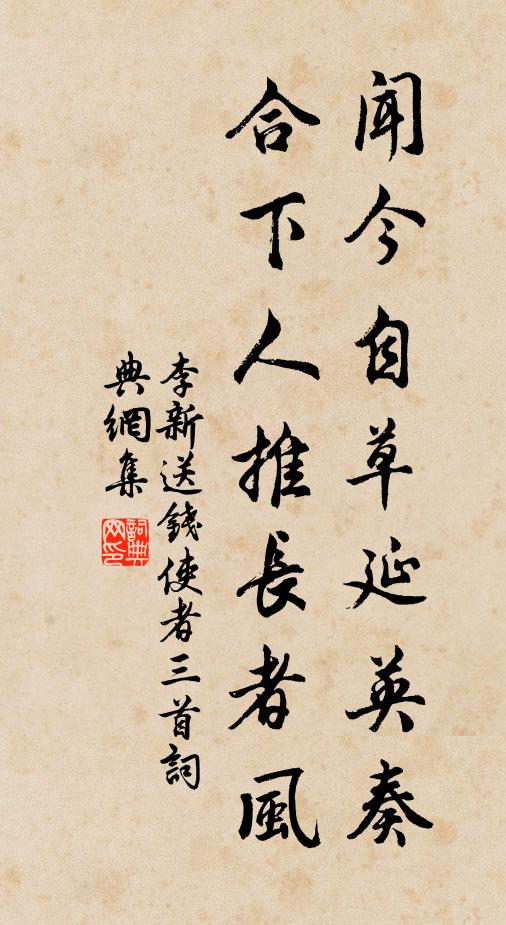 闻今自草延英奏
合下人推長者風
李新送錢使者三首詞
典網集
詞典
网印